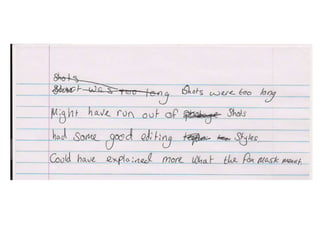 Shots
Shot was too long Shots were too long
Might have run out of Shots
had some good editing Styles
Could have explained more what the fox mask meant.